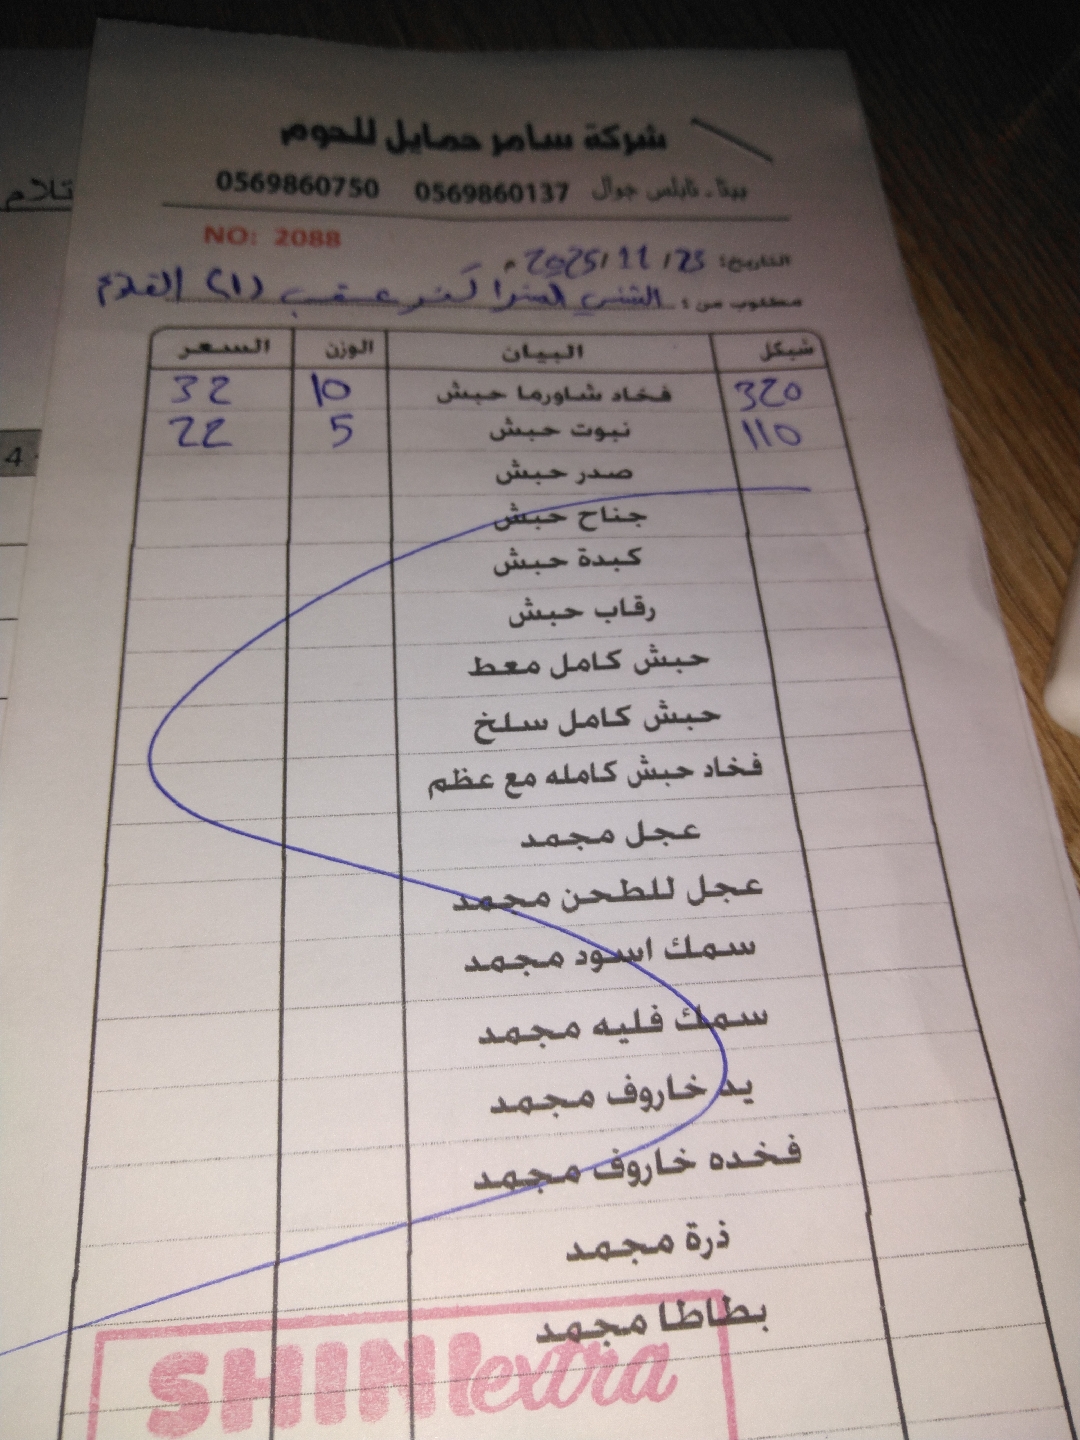 شركة سامر حمايل للحوم
بيتا - نابلس جوال 0569860137 0569860750
NO: 2088
التاريخ: 23/11/2025 م
مطلوب من: كفر عقب
شيكل البيان الوزن السعر
320 فخاد شاورما حبش 10 32
110 نبوت حبش 5 22
صدر حبش
جناح حبش
كبدة حبش
رقاب حبش
حبش كامل معط
حبش كامل سلخ
فخاد حبش كامله مع عظم
عجل مجمد
عجل للطحن مجمد
سمك اسود مجمد
سمك فليه مجمد
يد خاروف مجمد
فخده خاروف مجمد
ذرة مجمد
بطاطا مجمد
SHINI extra
4